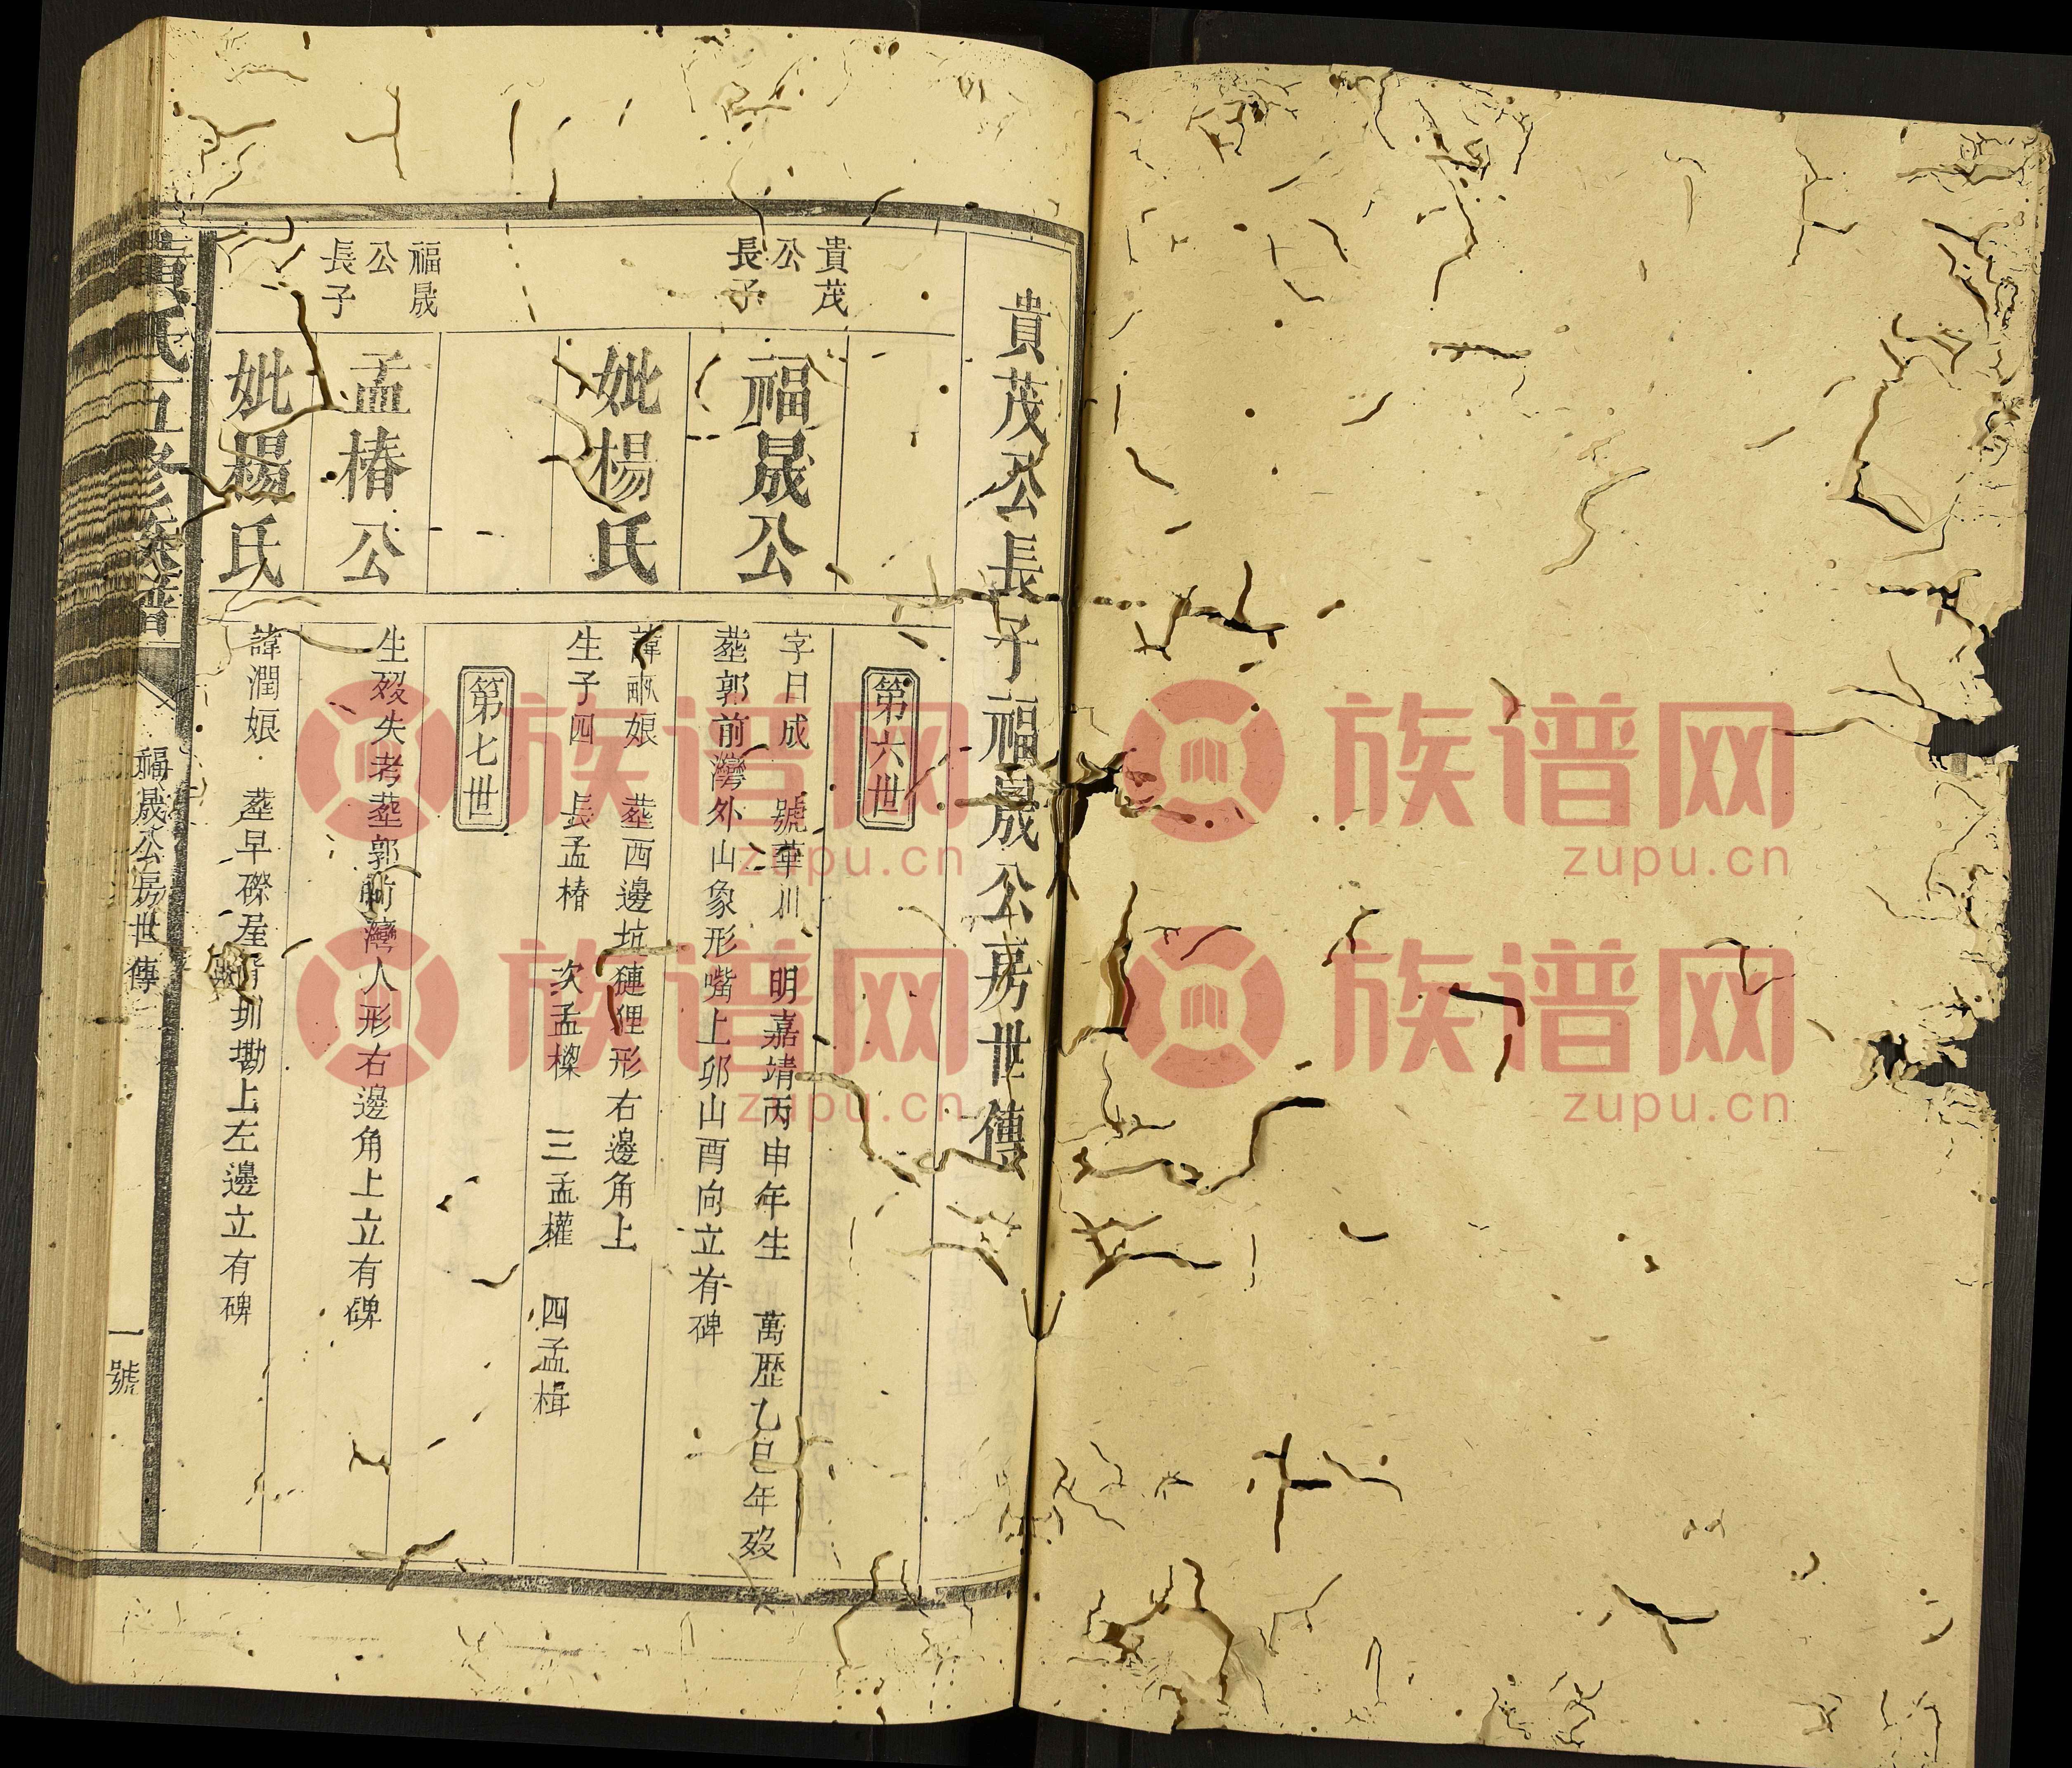 貴茂公長子福晟公房世傳
第六世
貴茂
公
長子
福晟公
字日成 號華川 明嘉靖丙申年生 萬歷乙巳年歿
塟郭前灣外山象形嘴上卯山酉向立有碑
妣楊氏
諱畝娘 塟西邊坑狸形右邊角上
生子四 長孟椿 次孟樑 三孟權 四孟楫
第七世
福晟
公
長子
孟椿公
生歿失考塟郭前灣人形右邊角上立有碑
妣楊氏
諱潤娘 塟早磜屋背圳墈上左邊立有碑
氏五修族譜
福晟公房世傳
一號
族谱网
zupu.cn
族谱网
zupu.cn
族谱网
zupu.cn
族谱网
zupu.cn